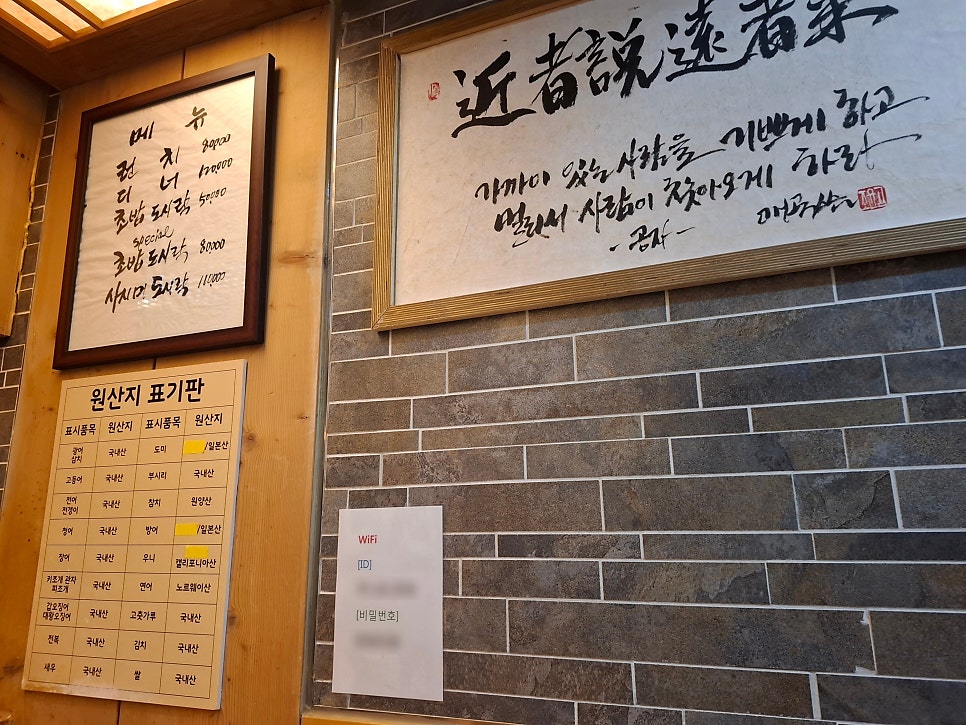 메 뉴
런 치 80000
디 너 120,000
초밥 도시락 50000
special
초밥 도시락 80000
사시미 도시락 110,000
원산지 표기판
표시품목 원산지 표시품목 원산지
광어 삼치 국내산 도미 /일본산
고등어 국내산 부시리 국내산
전어 전갱이 국내산 참치 원양산
청어 국내산 방어 /일본산
장어 국내산 우니 캘리포니아산
키조개 관자 피조개 국내산 연어 노르웨이산
갑오징어 대왕오징어 국내산 고춧가루 국내산
전복 국내산 김치 국내산
새우 국내산 쌀 국내산
近者說遠者來
가까이 있는 사람을 기쁘게 하고
멀리서 사람이 찾아오게 하라
-공자-
WiFi
[ID]
[비밀번호]